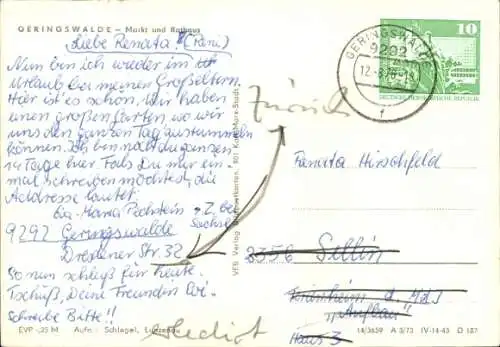 GERINGSWALDE – Markt und Rathaus
Liebe Renata! (Reni)
Nun bin ich wieder im
Urlaub bei meinen Großeltern.
Hier ist es schön. Wir haben
einen großen Garten, wo wir
uns den ganzen Tag austummeln
können. Ich bin noch die ganzen
14 Tage hier. Falls Du mir ein-
mal schreiben möchtest, die
Addresse lautet:
Maria Pechstein z.Z. bei
9292 Geringswalde Sachse
Dresdener Str. 32
So nun schließ für heute.
Tschüß, Deine Freundin
Schreibe Bitte!!
EVP -,25 M Aufn.: Schlegel, Lunzenau
VEB Verlag 801 Karl-Marx-Stadt
GERINGSWALDE
9292
12.-8
f
10
DEUTSCHE DEMOKRATISCHE REPUBLIK
Zurück
Renata Hirschfeld
2356 Sellin
Ferienheim d. MdJ
"Aufbau"
Haus 3
14/3659 A 3/73 IV-14-45 D 187